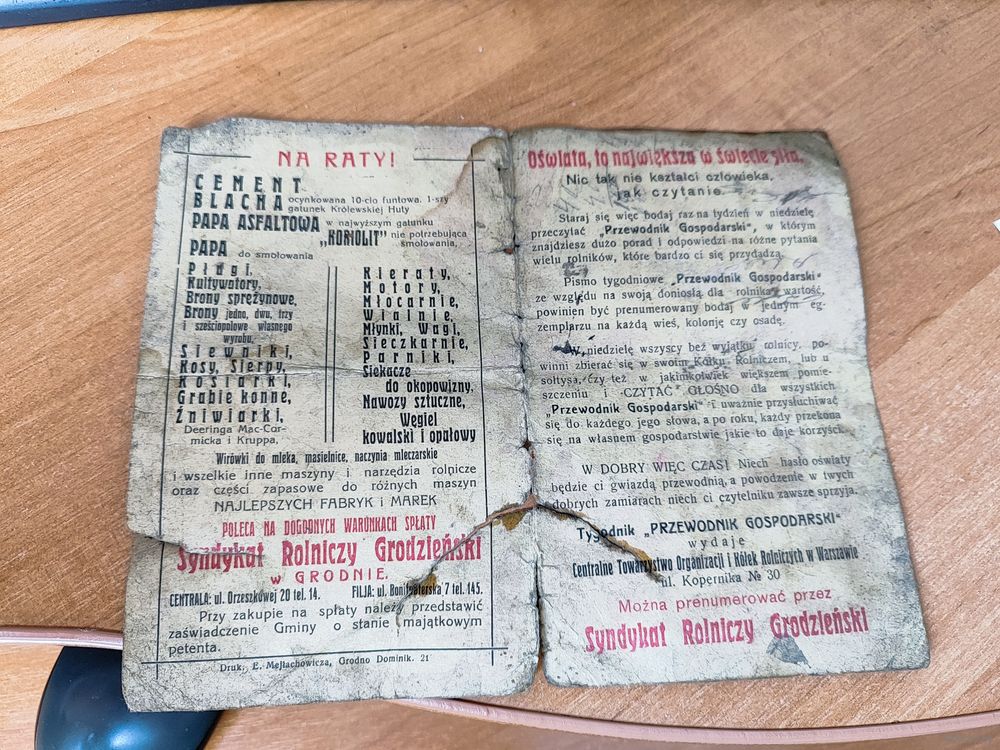 NA RATY!
CEMENT
BLACHA ocynkowana 10-cio funtowa. 1-szy
gatunek Królewskiej Huty
PAPA ASFALTOWA w najwyższym gatunku
„KORIOLIT" nie potrzebująca
smołowania,
PAPA do smołowania
Pługi,
Kultywatory,
Brony sprężynowe,
Brony jedno, dwu, trzy
i sześciopolowe własnego
wyrobu,
Siewniki,
Kosy, Sierpy,
Kosiarki,
Grabie konne,
Żniwiarki,
Deeringa Mac-Cor-
micka i Kruppa,
Kieraty,
Motory,
Młocarnie,
Wialnie,
Młynki, Wagi,
Sieczkarnie,
Parniki,
Siekacze
do okopowizny,
Nawozy sztuczne,
Węgiel
kowalski i opałowy
Wirówki do mleka, masielnice, naczynia mleczarskie
i wszelkie inne maszyny i narzędzia rolnicze
oraz części zapasowe do różnych maszyn
NAJLEPSZYCH FABRYK i MAREK
POLECA NA DOGODNYCH WARUNKACH SPŁATY
Syndykat Rolniczy Grodzieński
w GRODNIE.
CENTRALA: ul. Orzeszkowej 20 tel. 14. FILJA: ul. Bonifraterska 7 tel. 145.
Przy zakupie na spłaty należy przedstawić
zaświadczenie Gminy o stanie majątkowym
petenta.
Druk. E. Mejłachowicza, Grodno Dominik. 21
Oświata, to największa w świecie siła.
Nic tak nie kształci człowieka,
jak czytanie.
Staraj się więc bodaj raz na tydzień w niedzielę
przeczytać „Przewodnik Gospodarski", w którym
znajdziesz dużo porad i odpowiedzi na różne pytania
wielu rolników, które bardzo ci się przydadzą.
Pismo tygodniowe „Przewodnik Gospodarski"
ze względu na swoją doniosłą dla rolnika wartość,
powinien być prenumerowany bodaj w jednym eg-
zemplarzu na każdą wieś, kolonję czy osadę.
W niedzielę wszyscy bez wyjątku rolnicy, po-
winni zbierać się w swoim Kółku Rolniczem, lub u
sołtysa, czy też w jakimkolwiek większem pomie-
szczeniu i CZYTAĆ GŁOŚNO dla wszystkich
„Przewodnik Gospodarski" i uważnie przysłuchiwać
się do każdego jego słowa, a po roku, każdy przekona
się na własnem gospodarstwie jakie to daje korzyści.
W DOBRY WIĘC CZAS! Niech hasło oświaty
będzie ci gwiazdą przewodnią, a powodzenie w twych
dobrych zamiarach niech ci czytelniku zawsze sprzyja.
Tygodnik „PRZEWODNIK GOSPODARSKI"
wydaje
Centralne Towarzystwo Organizacji i Kółek Rolniczych w Warszawie
ul. Kopernika № 30
Można prenumerować przez
Syndykat Rolniczy Grodzieński